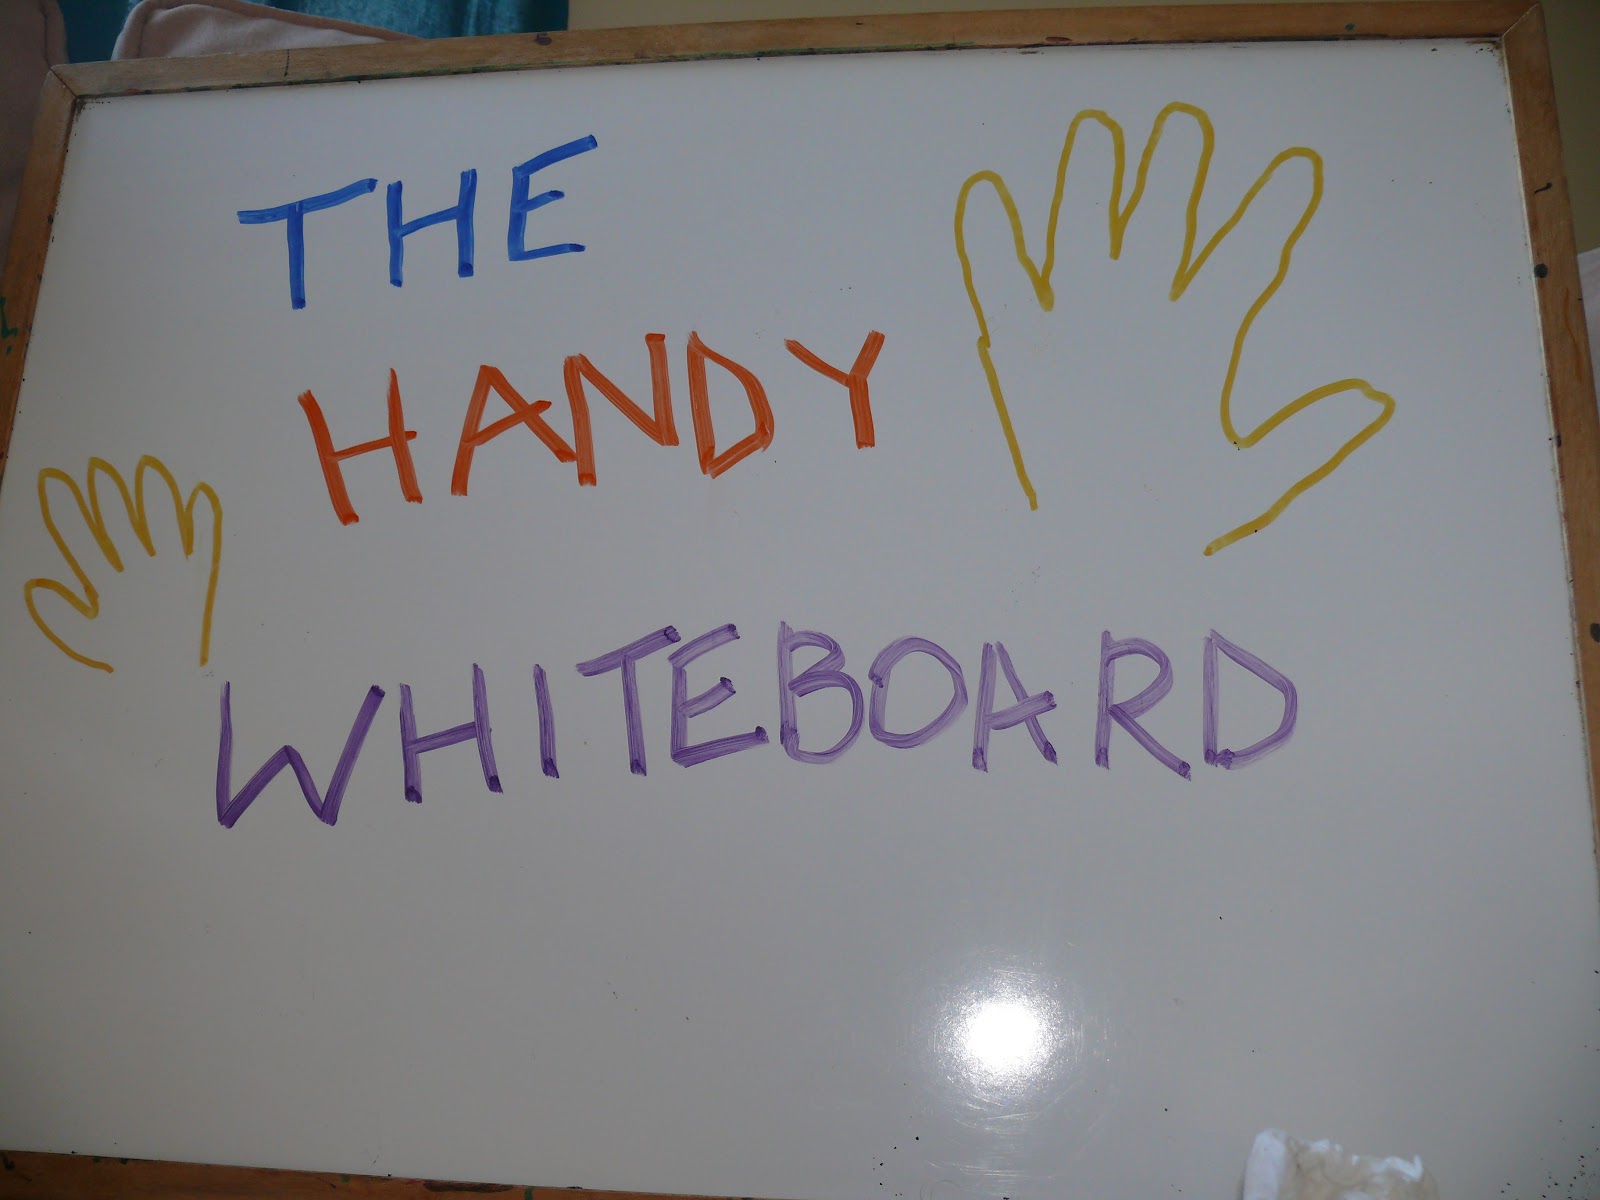 THE
HANDY
WHITEBOARD